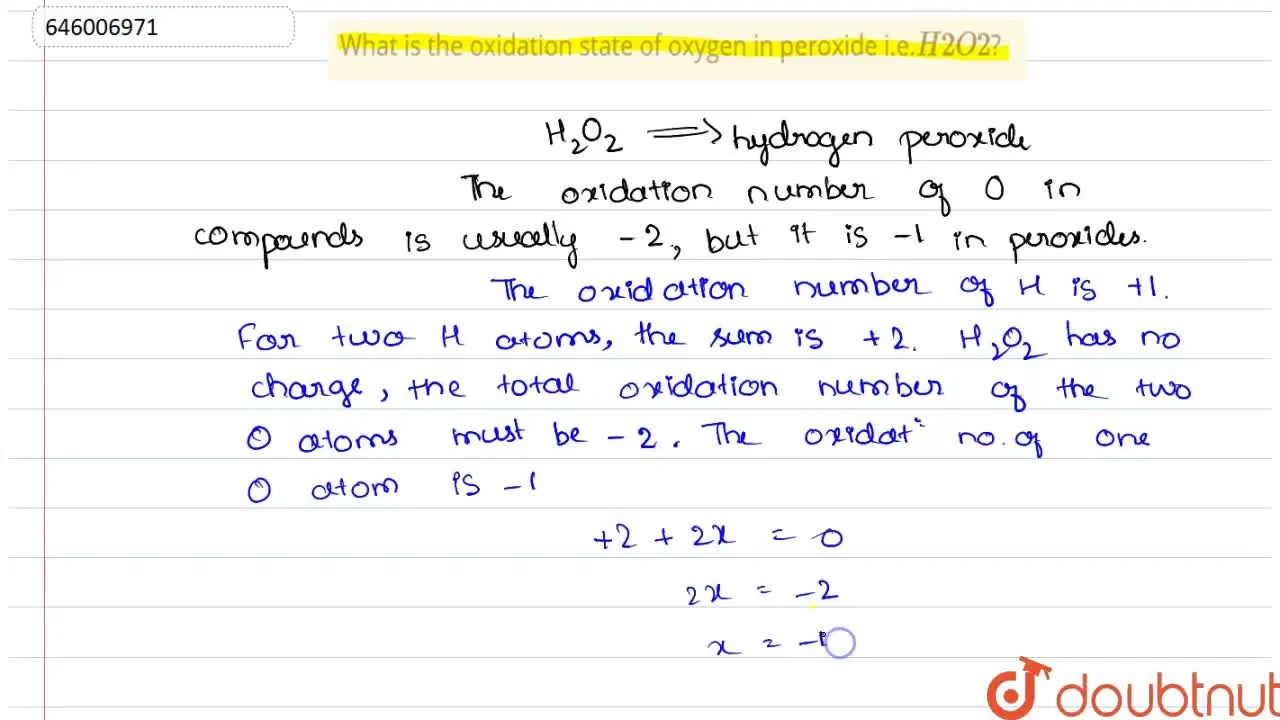 646006971
What is the oxidation state of oxygen in peroxide i.e.H2O2?
H₂O₂ ⟹ hydrogen peroxide
The oxidation number of O in
compounds is usually -2, but it is -1 in peroxides.
The oxidation number of H is +1.
For two H atoms, the sum is +2. H₂O₂ has no
charge, the total oxidation number of the two
O atoms must be -2. The oxidatⁿ no. of one
O atom is -1
+2 + 2x = 0
2x = -2
x = -1
doubtnut